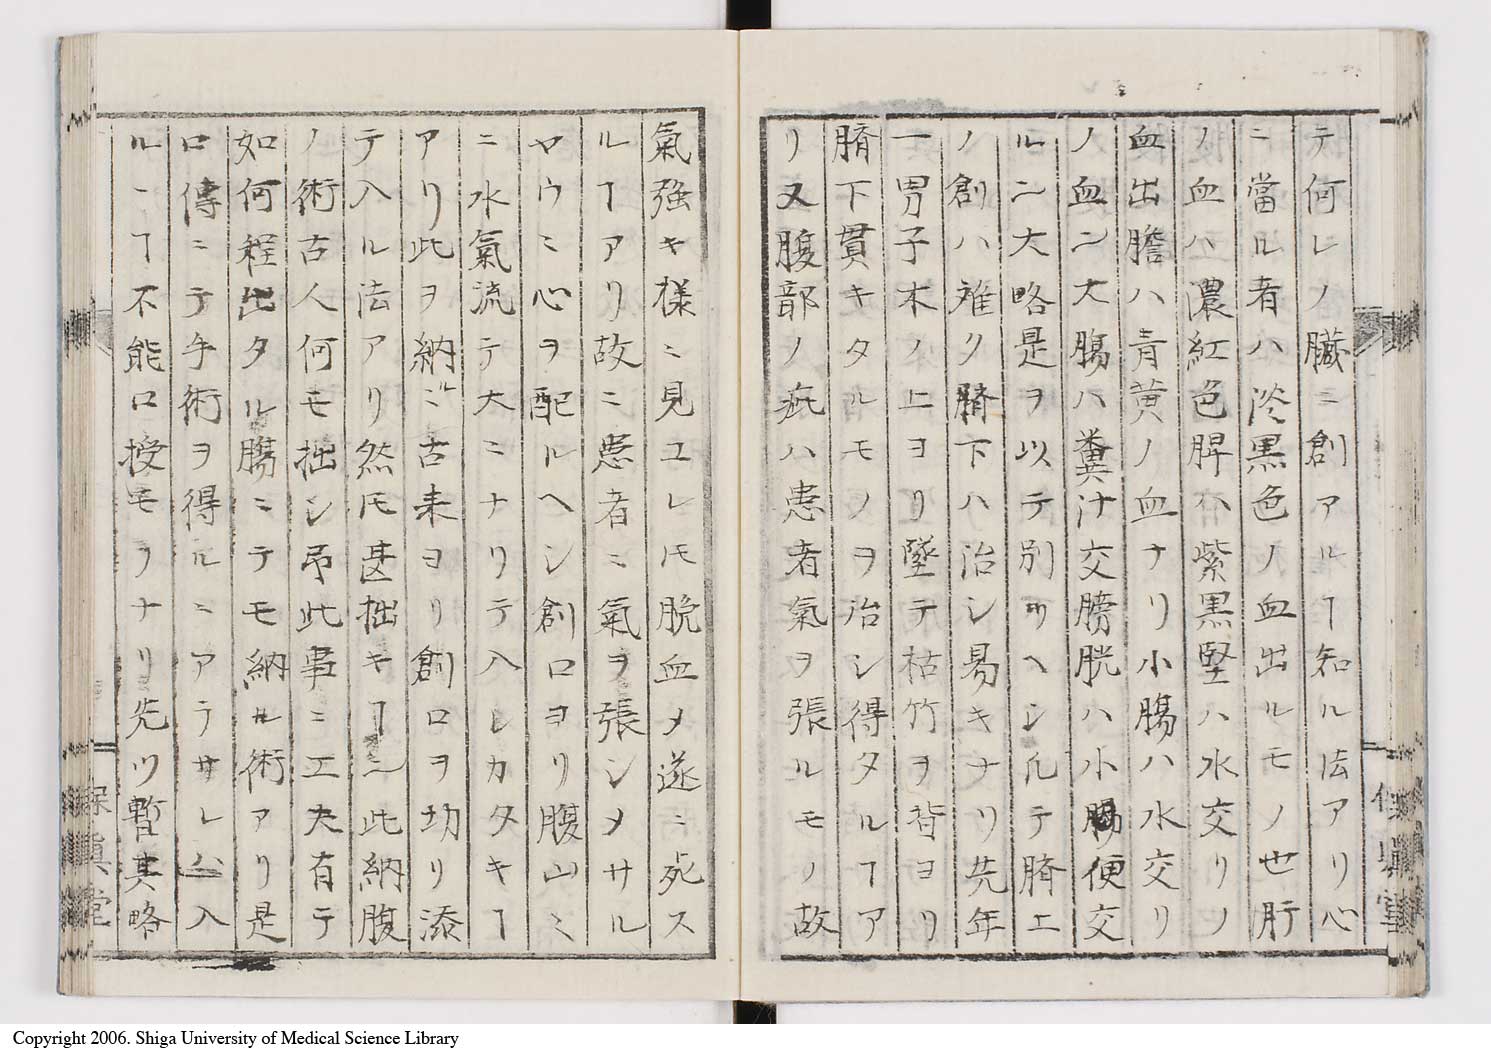 テ何レノ臓ニ創アルヿ知ル法アリ心
ニ當ル者ハ淡黒色ノ血出ルモノ也肝
ノ血ハ濃紅色脾ハ紫黒堅ハ水交リノ
血出膽ハ青黄ノ血ナリ小腸ハ水交リ
ノ血ニ大腸ハ糞汁交膀胱ハ小腸便交
ルニ大略是ヲ以テ別ツヘシ凢テ臍エ
ノ創ハ难ク臍下ハ治シ易キナリ先年
一男子木ノ上ヨリ墜テ枯竹ヲ背ヨリ
臍下貫キタルモノヲ治シ得タルヿア
リ又腹部ノ疵ハ患者氣ヲ張ルモノ故
氣強キ様ニ見エレ𪜈脱血メ遂ニ死ス
ルヿアリ故ニ患者ニ氣ヲ張シメサル
ヤウニ心ヲ配ルヘシ創口ヨリ腹山ミ
ニ水氣流テ大ニナリテ入レカタキヿ
アリ此ヲ納ルニ古来ヨリ創口ヲ切リ添
テ入ル法アリ然𪜈甚拙キヿニ此納腹
ノ術古人何モ拙シ予此事ニ工夫有テ
如何程出タル腸ニテモ納ル術アリ是
口傳ニテ手術ヲ得ルニアラサレハ入
ルヿ不能口授モノナリ先ツ暫其略
保眞堂